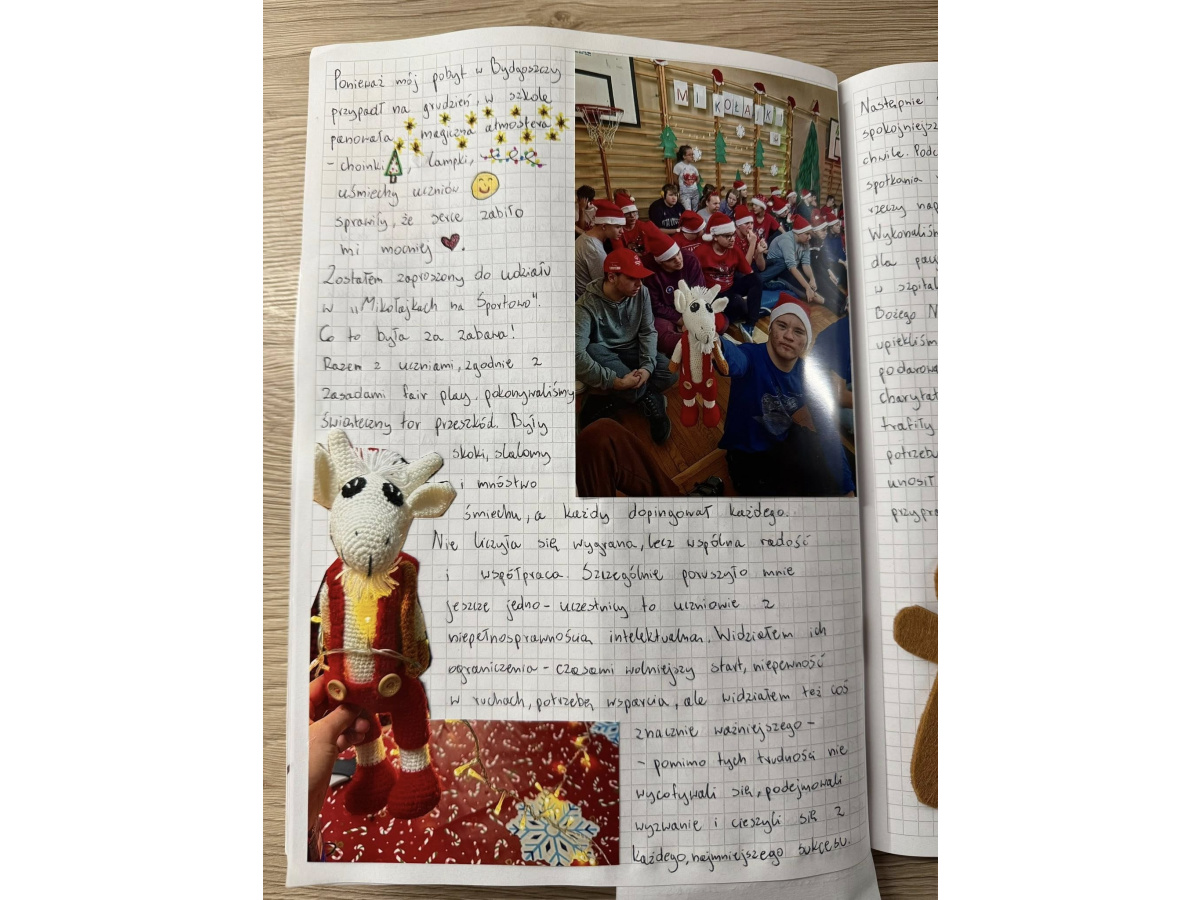 Ponieważ mój pobyt w Bydgoszczy
przypadł na grudzień, w szkole
panowała magiczna atmosfera
- choinki, lampki,
uśmiechy uczniów
sprawiły, że serce zabiło
mi mocniej.
Zostałem zaproszony do udziału
w "Mikołajkach na Sportowo".
Co to była za zabawa!
Razem z uczniami, zgodnie z
zasadami fair play, pokonywaliśmy
świąteczny tor przeszkód. Były
skoki, slalomy
i mnóstwo
śmiechu, a każdy dopingował każdego.
Nie liczyła się wygrana, lecz wspólna radość
i współpraca. Szczególnie poruszyło mnie
jeszcze jedno - uczestnicy to uczniowie z
niepełnosprawnością intelektualną. Widziałem ich
ograniczenia - czasami wolniejszy start, niepewność
w ruchach, potrzebę wsparcia, ale widziałem też coś
znacznie ważniejszego -
- pomimo tych trudności nie
wycofywali się, podejmowali
wyzwanie i cieszyli się z
każdego, najmniejszego sukcesu.
MIKOŁAJKI
Następnie
spokojniejsz
chwile. Podc
spotkania
rzeczy nap
Wykonaliśm
dla pac
w szpital
Bożego N
upiekliśm
podarowa
charytat
trafiły
potrzebu
unosił
przypra